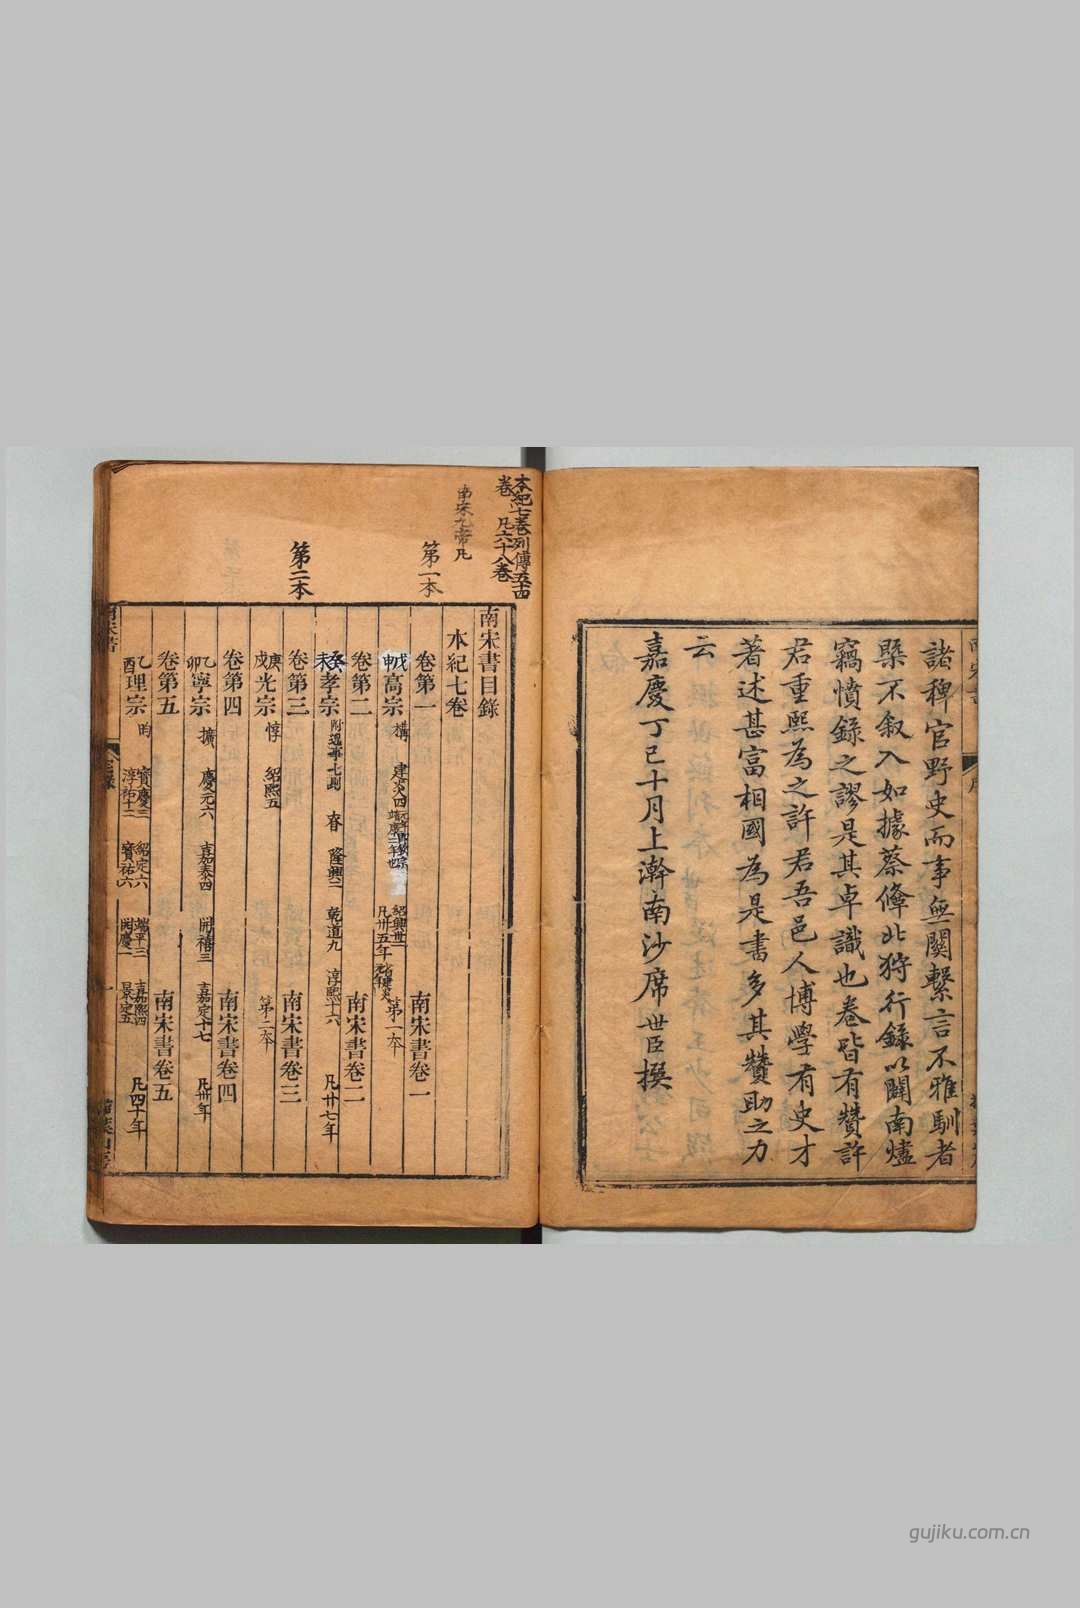 諸稗官野史而事無關繫言不雅馴者
槩不叙入如據蔡鞗北狩行錄以闢南燼
竊憤錄之謬是其卓識也卷皆有贊許
君重熙為之許君吾邑人博學有史才
著述甚富相國為是書多其贊助之力
云
嘉慶丁巳十月上澣南沙席世臣撰
本紀七卷列傳五十四
卷 凡六十八卷
南宋九帝凡
第一本
第二本
南宋書目錄
本紀七卷
卷第一 南宋書卷一
戊申 高宗 構 建炎四 紹興卅二 凡卅五年 第一本
卷第二 南宋書卷二
癸未 孝宗 附遺事七則 昚 隆興二 乾道九 淳熙十六 凡廿七年
卷第三 南宋書卷三
庚戌 光宗 惇 紹熙五 第二本
卷第四 南宋書卷四
乙卯 寧宗 擴 慶元六 嘉泰四 開禧三 嘉定十七 凡卅年
卷第五 南宋書卷五
乙酉 理宗 昀 寶慶三 紹定六 端平三 嘉熙四 淳祐十二 寶祐六 開慶一 景定五 凡四十年
gujiku.com.cn